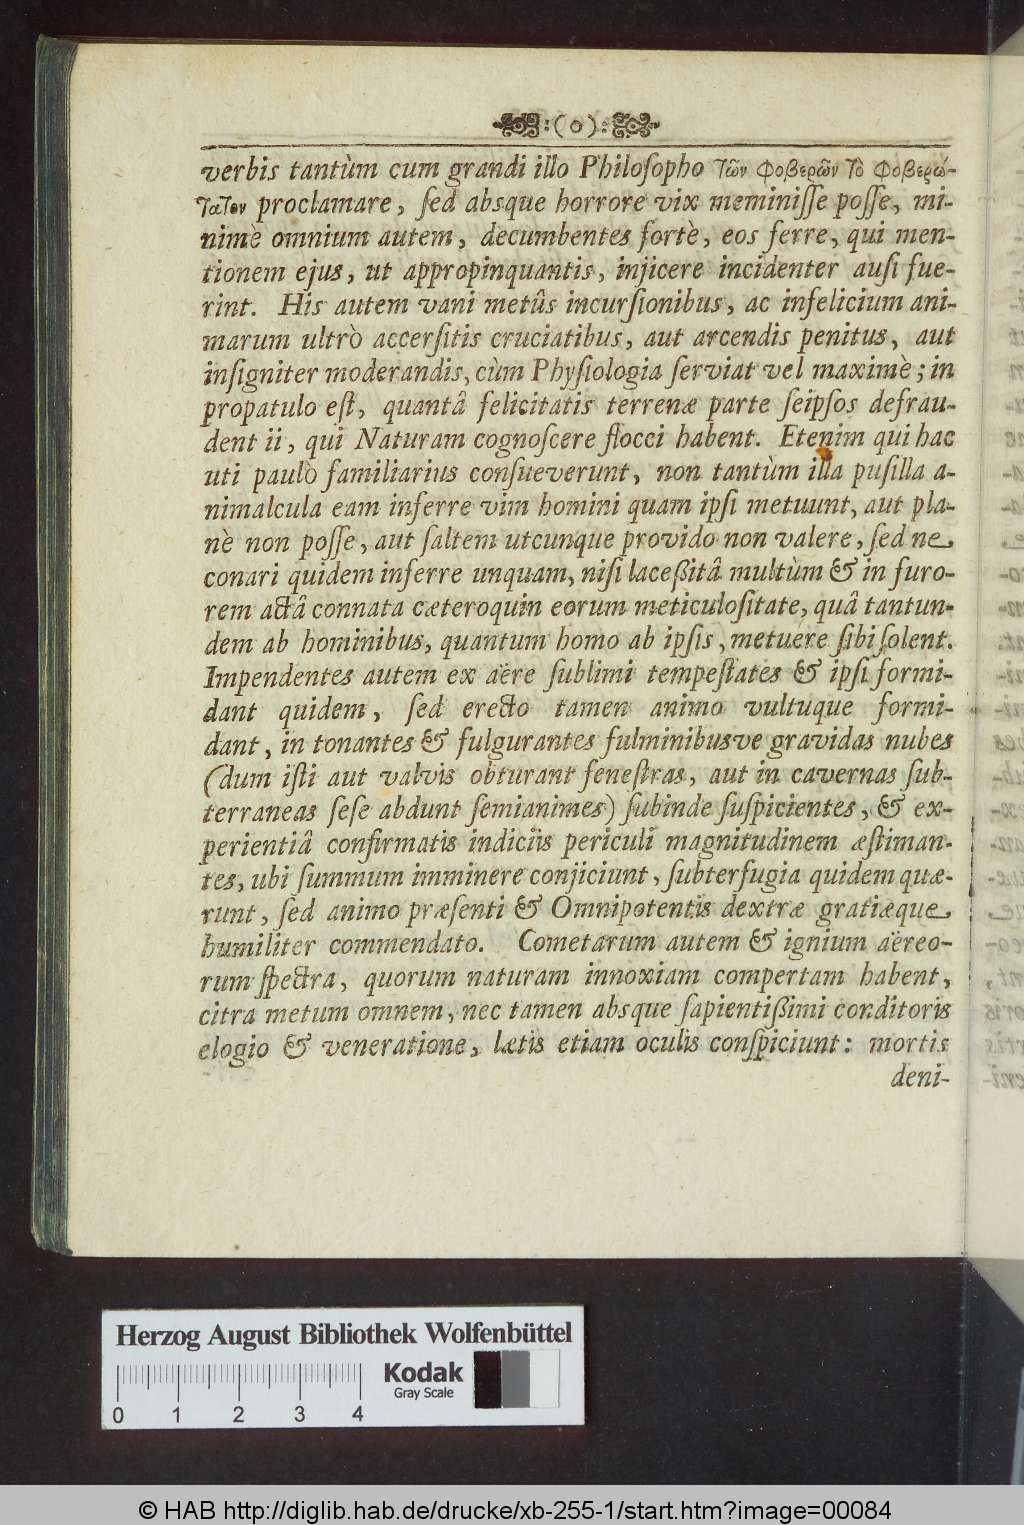 :(o):
verbis tantùm cum grandi illo Philoſopho τῶν φοβερῶν τὸ φοβερώ-
τατον proclamare, ſed absque horrore vix meminiſſe poſſe, mi-
nimè omnium autem, decumbentes fortè, eos ferre, qui men-
tionem ejus, ut appropinquantis, injicere incidenter auſi fue-
rint. His autem vani metûs incurſionibus, ac infelicium ani-
marum ultrò accerſitis cruciatibus, aut arcendis penitus, aut
inſigniter moderandis, cùm Phyſiologia ſerviat vel maximè; in
propatulo eſt, quantâ felicitatis terrenæ parte ſeipſos defrau-
dent ii, qui Naturam cognoſcere flocci habent. Etenim qui hac
uti paulò familiarius conſueverunt, non tantùm illa puſilla a-
nimalcula eam inferre vim homini quam ipſi metuunt, aut pla-
nè non poſſe, aut ſaltem utcunque provido non valere, ſed ne
conari quidem inferre unquam, niſi laceßitâ multùm & in furo-
rem actâ connata cæteroquin eorum meticuloſitate, quâ tantun-
dem ab hominibus, quantum homo ab ipſis, metuere ſibi ſolent.
Impendentes autem ex aëre ſublimi tempeſtates & ipſi formi-
dant quidem, ſed erecto tamen animo vultuque formi-
dant, in tonantes & fulgurantes fulminibusve gravidas nubes
(dum iſti aut valvis obturant feneſtras, aut in cavernas ſub-
terraneas ſeſe abdunt ſemianimes) ſubinde ſuſpicientes, & ex-
perientiâ confirmatis indiciis periculi magnitudinem æſtiman-
tes, ubi ſummum imminere conjiciunt, ſubterfugia quidem quæ-
runt, ſed animo præſenti & Omnipotentis dextræ gratiæque
humiliter commendato. Cometarum autem & ignium aëreo-
rum ſpectra, quorum naturam innoxiam compertam habent,
citra metum omnem, nec tamen absque ſapientißimi conditoris
elogio & veneratione, lætis etiam oculis conſpiciunt: mortis
deni-
Herzog August Bibliothek Wolfenbüttel
Kodak
Gray Scale
0 1 2 3 4
© HAB http://diglib.hab.de/drucke/xb-255-1/start.htm?image=00084